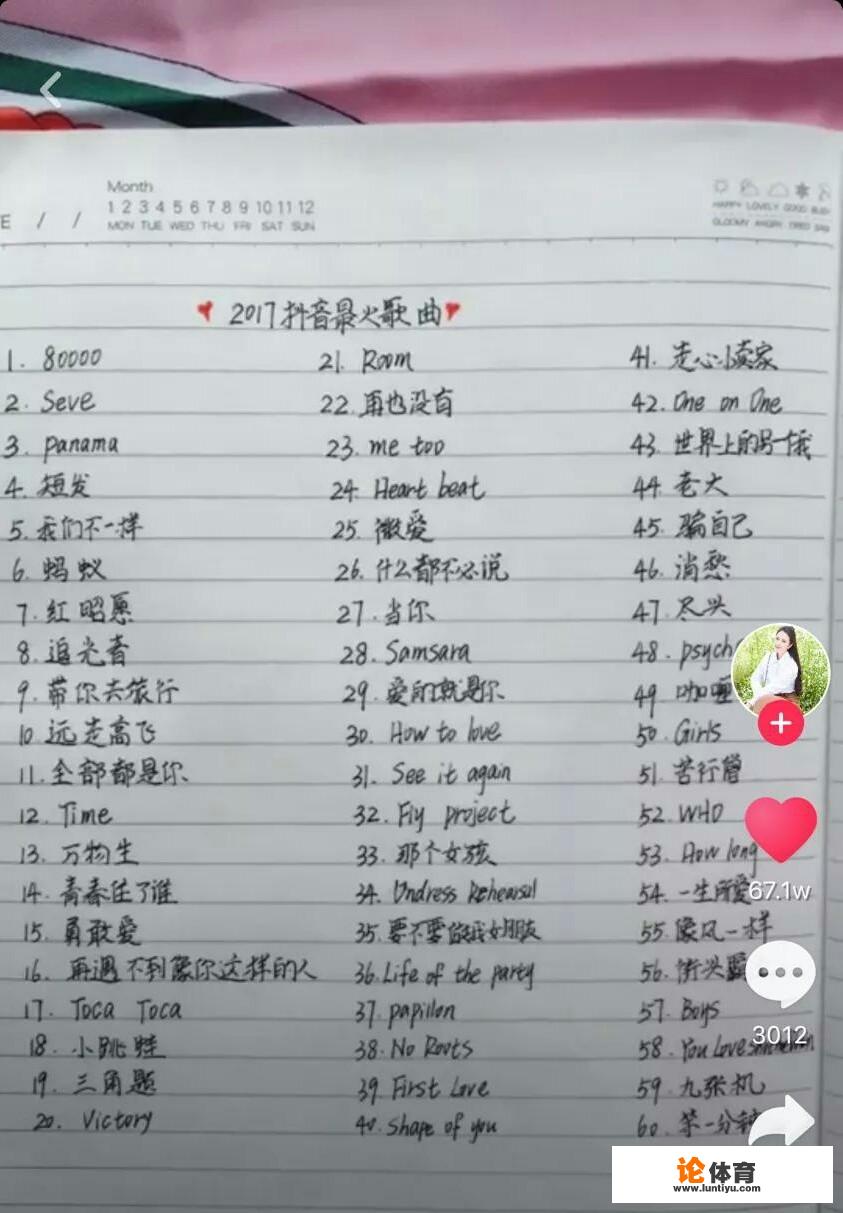 Month
1 2 3 4 5 6 7 8 9 10 11 12
MON TUE WED THU FRI SAT SUN
E / /
HAPPY LOVELY GOOD
GLOOMY ANGRY
2017抖音最火歌曲
1. 80000
2. Seve
3. panama
4. 短发
5. 我们不一样
6. 蚂蚁
7. 红昭愿
8. 追光者
9. 带你去旅行
10. 远走高飞
11. 全部都是你
12. Time
13. 万物生
14. 青春住了谁
15. 勇敢爱
16. 再遇不到像你这样的人
17. Toca Toca
18. 小跳蛙
19. 三角题
20. Victory
21. Room
22. 再也没有
23. me too
24. Heart beat
25. 微爱
26. 什么都不必说
27. 当你
28. Samsara
29. 爱的就是你
30. How to love
31. See it again
32. Fly project
33. 那个女孩
34. Undress Rehearsal
35. 要不要做我女朋友
36. Life of the party
37. papillon
38. No Roots
39. First Love
40. Shape of you
41. 走心小卖家
42. One on One
43. 世界上的另一个我
44. 老大
45. 骗自己
46. 消愁
47. 尽头
48.
49. 咖喱
50. Girls
51. 苦行僧
52. WHO
53. How long
54. 一生所爱
55. 像风一样
56. 街头
57. Boys
58. You Love
59. 九张机
60. 第一分钟
67.1w
3012
论体育
www.luntiyu.com